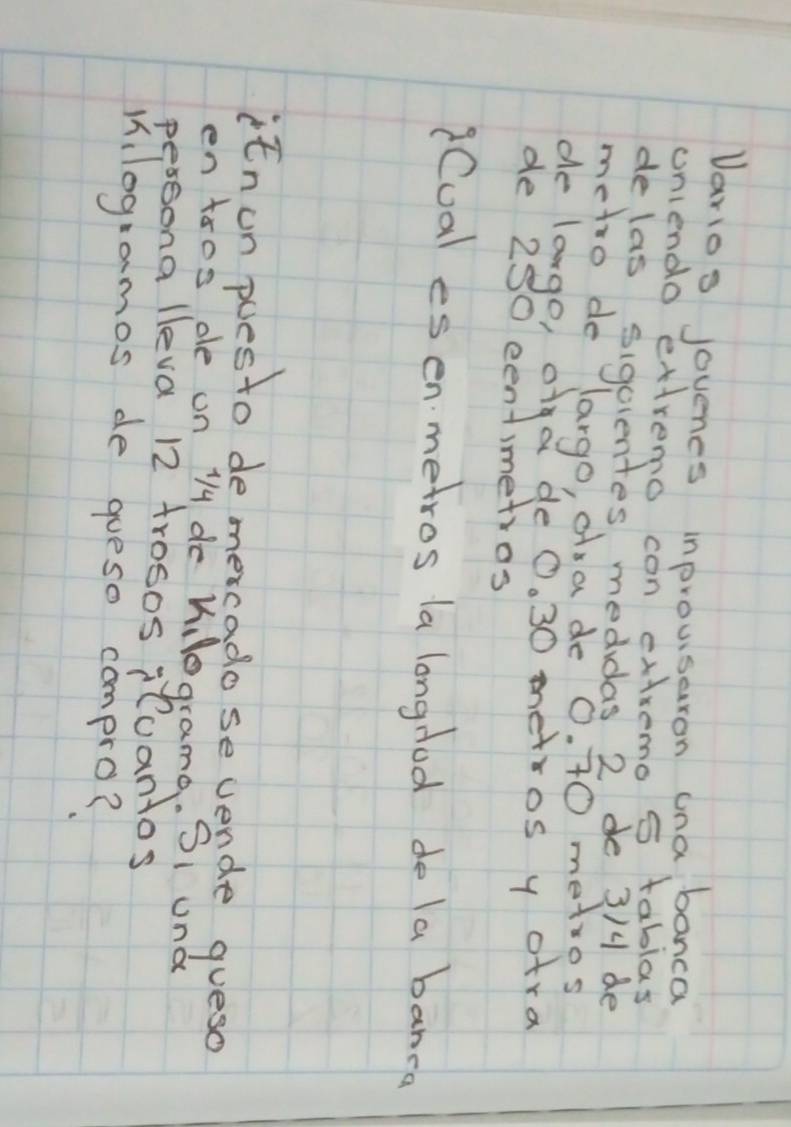 Varios jovenes inprovisaron una banca
uniendo extremo con extremo 5 tablas
de las siguientes medidas 2 de 3/4 de
metro de largo, otra de 0.70 metros
de largo, otra de 0.30 metros y otra
de 250 centimetros
¿Cual es en metros la longitud de la banca
¿En un puesto de mercado se vende queso
en tros de un 1/4 de kilogramo. Si una
persona lleva 12 trosos ¿Cuantos
Kilogramos de queso compro?